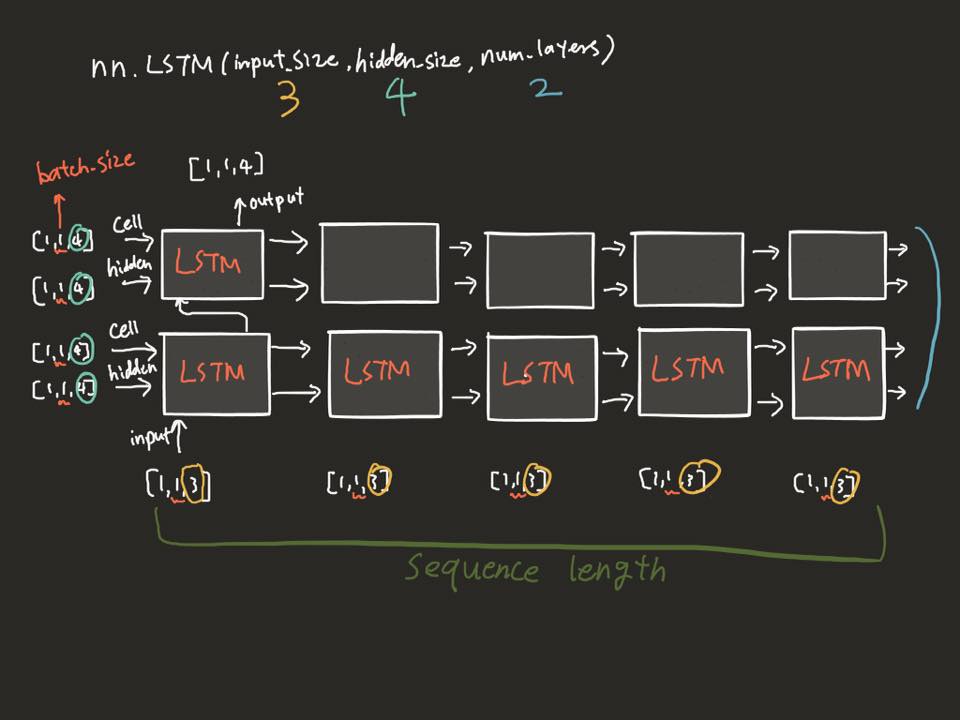 nn.LSTM(input_size, hidden_size, num_layers)
3 4 2
batch-size
[1,1,4]
output
[1,1,4] cell
LSTM
[1,1,4] hidden
[1,1,4] cell
[1,1,4] hidden
LSTM LSTM LSTM LSTM LSTM
input
[1,1,3] [1,1,3] [1,1,3] [1,1,3] [1,1,3]
Sequence length